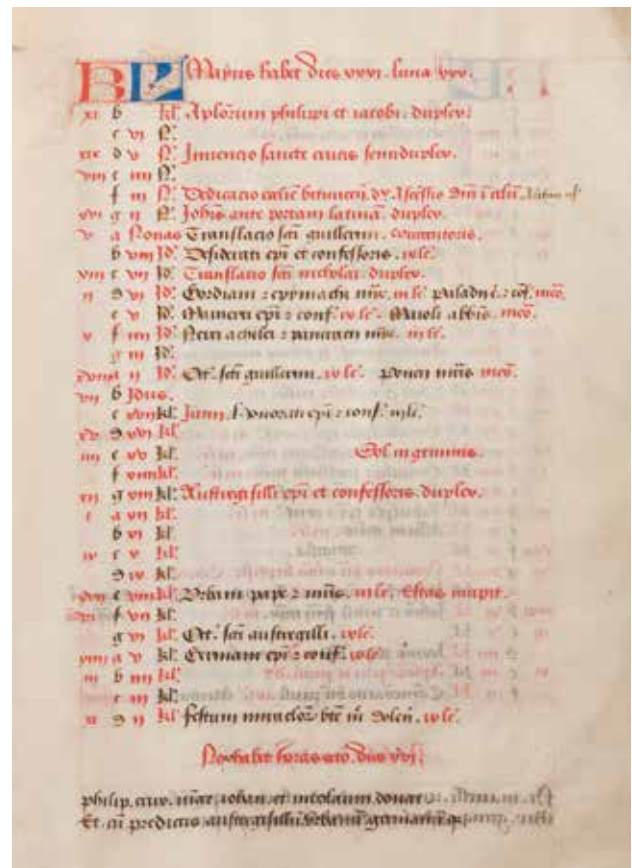 KL Mayus habet dies xxxi. luna xxx.
xi b kl. Aplorum philippi et iacobi. duplex.
c vi N.
xix d v N. Invencio sancte crucis semiduplex.
viii e iiii N.
f iii N. Dedicacio
xvi g ii N. Johis ante portam latinam. duplex.
v a Nonas Translacio sci guillermi.
b viii Id. Desiderati epi et confessoris. ix le.
xiii c vii Id. Translacio sci nicholai. duplex.
ii d vi Id. Gordiani et epymachi mr. iii le.
e v Id. Mamerti epi et conf. ix le. Maioli abbis. meo.
x f iiii Id. Nerei achilei et pancracii mr. iii le.
g iii Id.
xviii a ii Id. Oct. sci guillermi. ix le. Poncii mris meo.
vii b Idus.
c xvii kl. Junii. Honorati epi et conf. iii le.
xv d xvi kl.
iiii e xv kl. Sol in geminis.
f xiiii kl.
xii g xiii kl. Austregisilli epi et confessoris. duplex.
i a xii kl.
b xi kl.
ix c x kl.
d ix kl.
xvii e viii kl. Urbani pape et mris. iii le. Estas incipit.
vi f vii kl.
g vi kl. Oct. sci austregisilli. ix le.
xiiii a v kl. Germani epi et conf. ix le.
iii b iiii kl.
c iii kl.
xi d ii kl. festum miraclorum bte m. ix le.
Nox habet horas octo. dies xvi.
philip. crux. iohan. et nicolaum
Et cum predictis austregisillum urbanum germanum